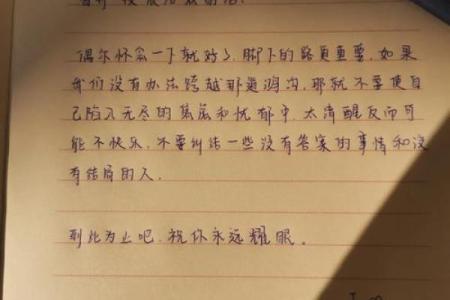 偶尔怀念一下就好了,脚下的路更重要,如果
我们没有办法跨越那道鸿沟,那就不要使自
己陷入无尽的焦虑和忧郁中,太清醒反而可
能不快乐,不要纠结一些没有答案的事情和没
有结局的人。
到此为止吧,祝你永远耀眼。